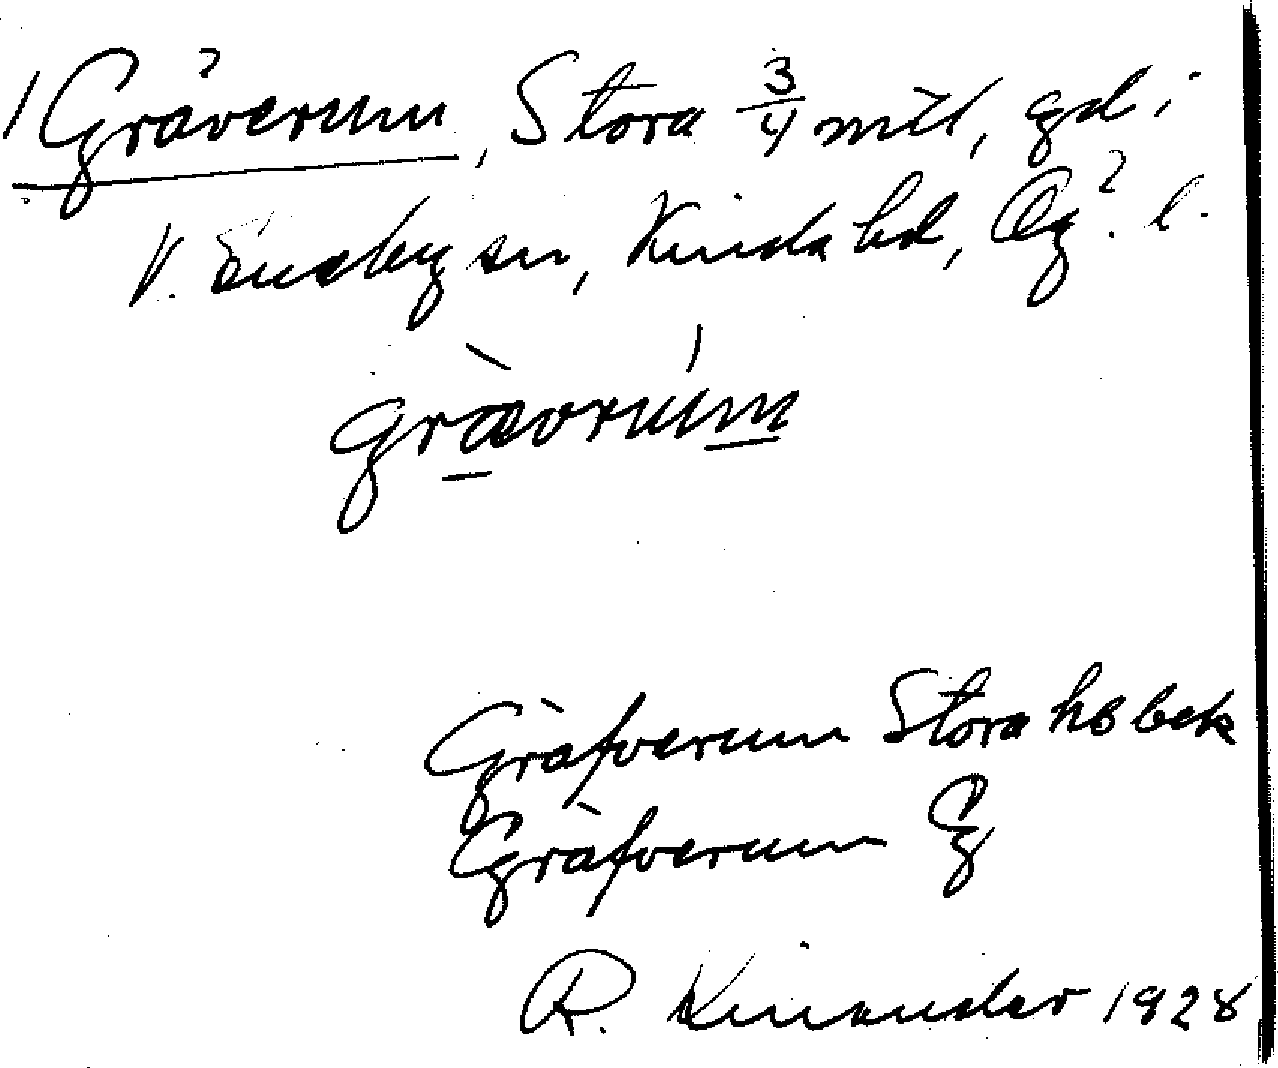 Gräverum, Stora 3/4 mtl, gd i
V. Eneby sn, Kinda hd, Ög. l.
grævrùm
Gräfverum Stora hsbek
Gräfverum G
R. Kinander 1928